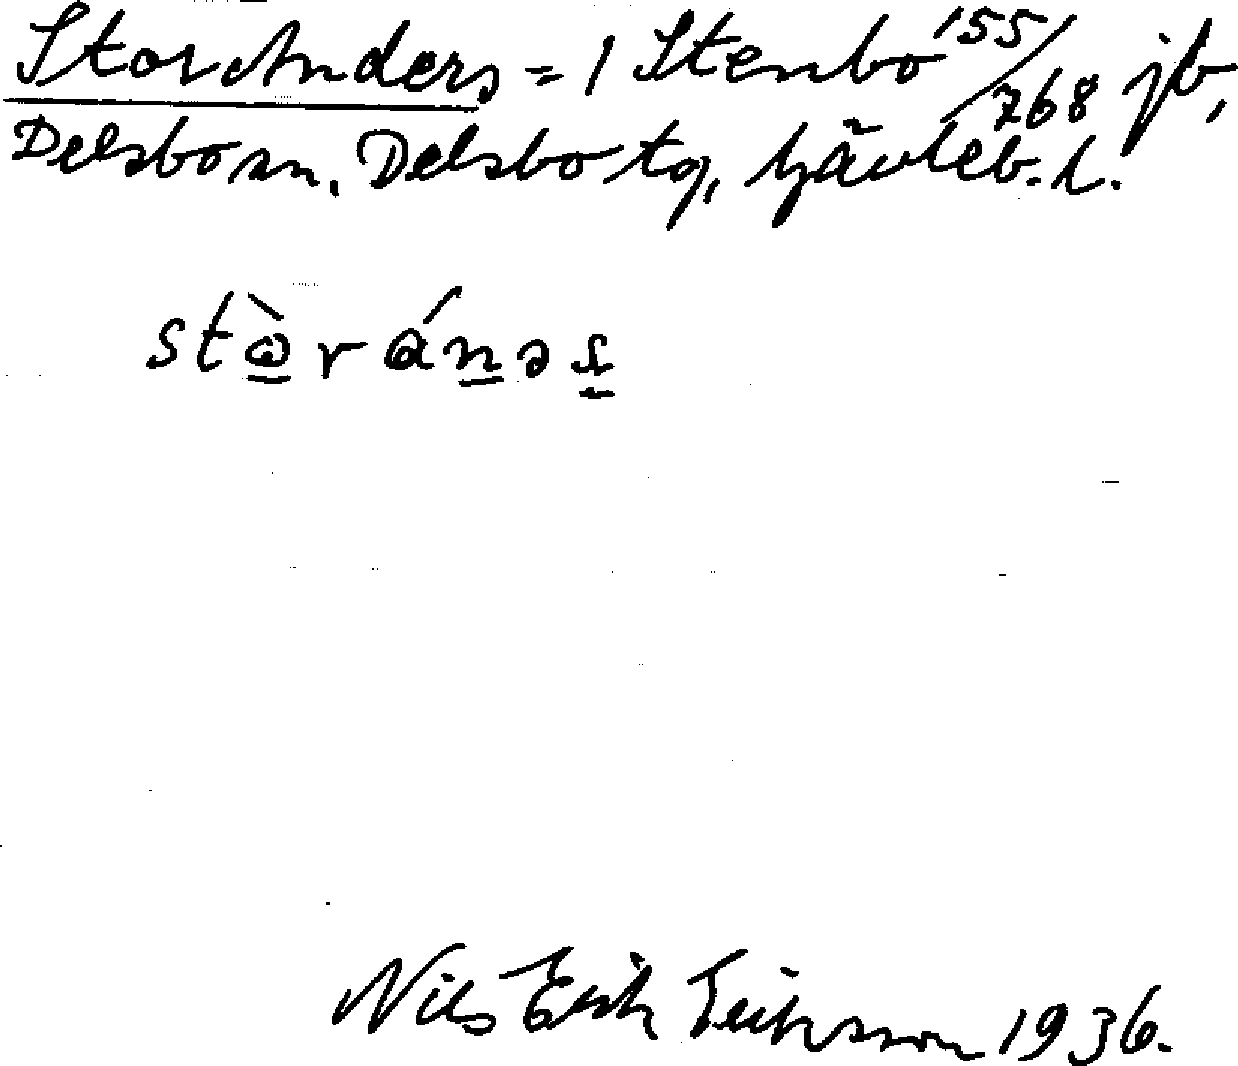 StorAnders = 1 Stenbo 155/768 jb,
Delsbo sn. Delsbo tg, Gävleb. l.
stò̱ránəs
Nils Erik Eriksson 1936.